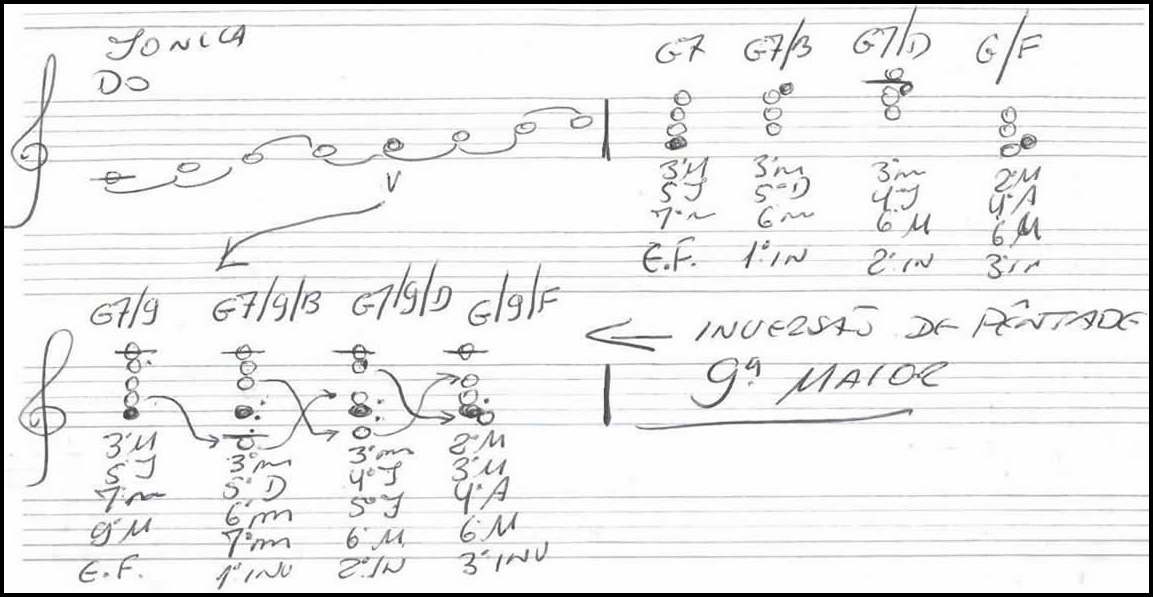 TONICA
DO
V
G7 G7/B G7/D G/F
3ªM 3ªm 3ªm 2ªM
5ªJ 5ªD 4ªJ 4ªA
7ªm 6ªm 6ªM 6ªM
E.F. 1ªIN 2ªIN 3ªIN
G7/9 G7/9/B G7/9/D G/9/F
INVERSÃO DE PÊNTADE
9ª MAIOR
3ªM 3ªm 3ªm 2ªM
5ªJ 5ªD 4ªJ 3ªM
7ªm 6ªm 5ªJ 4ªA
9ªM 7ªm 6ªM 6ªM
E.F. 1ªINV 2ªIN 3ªINV